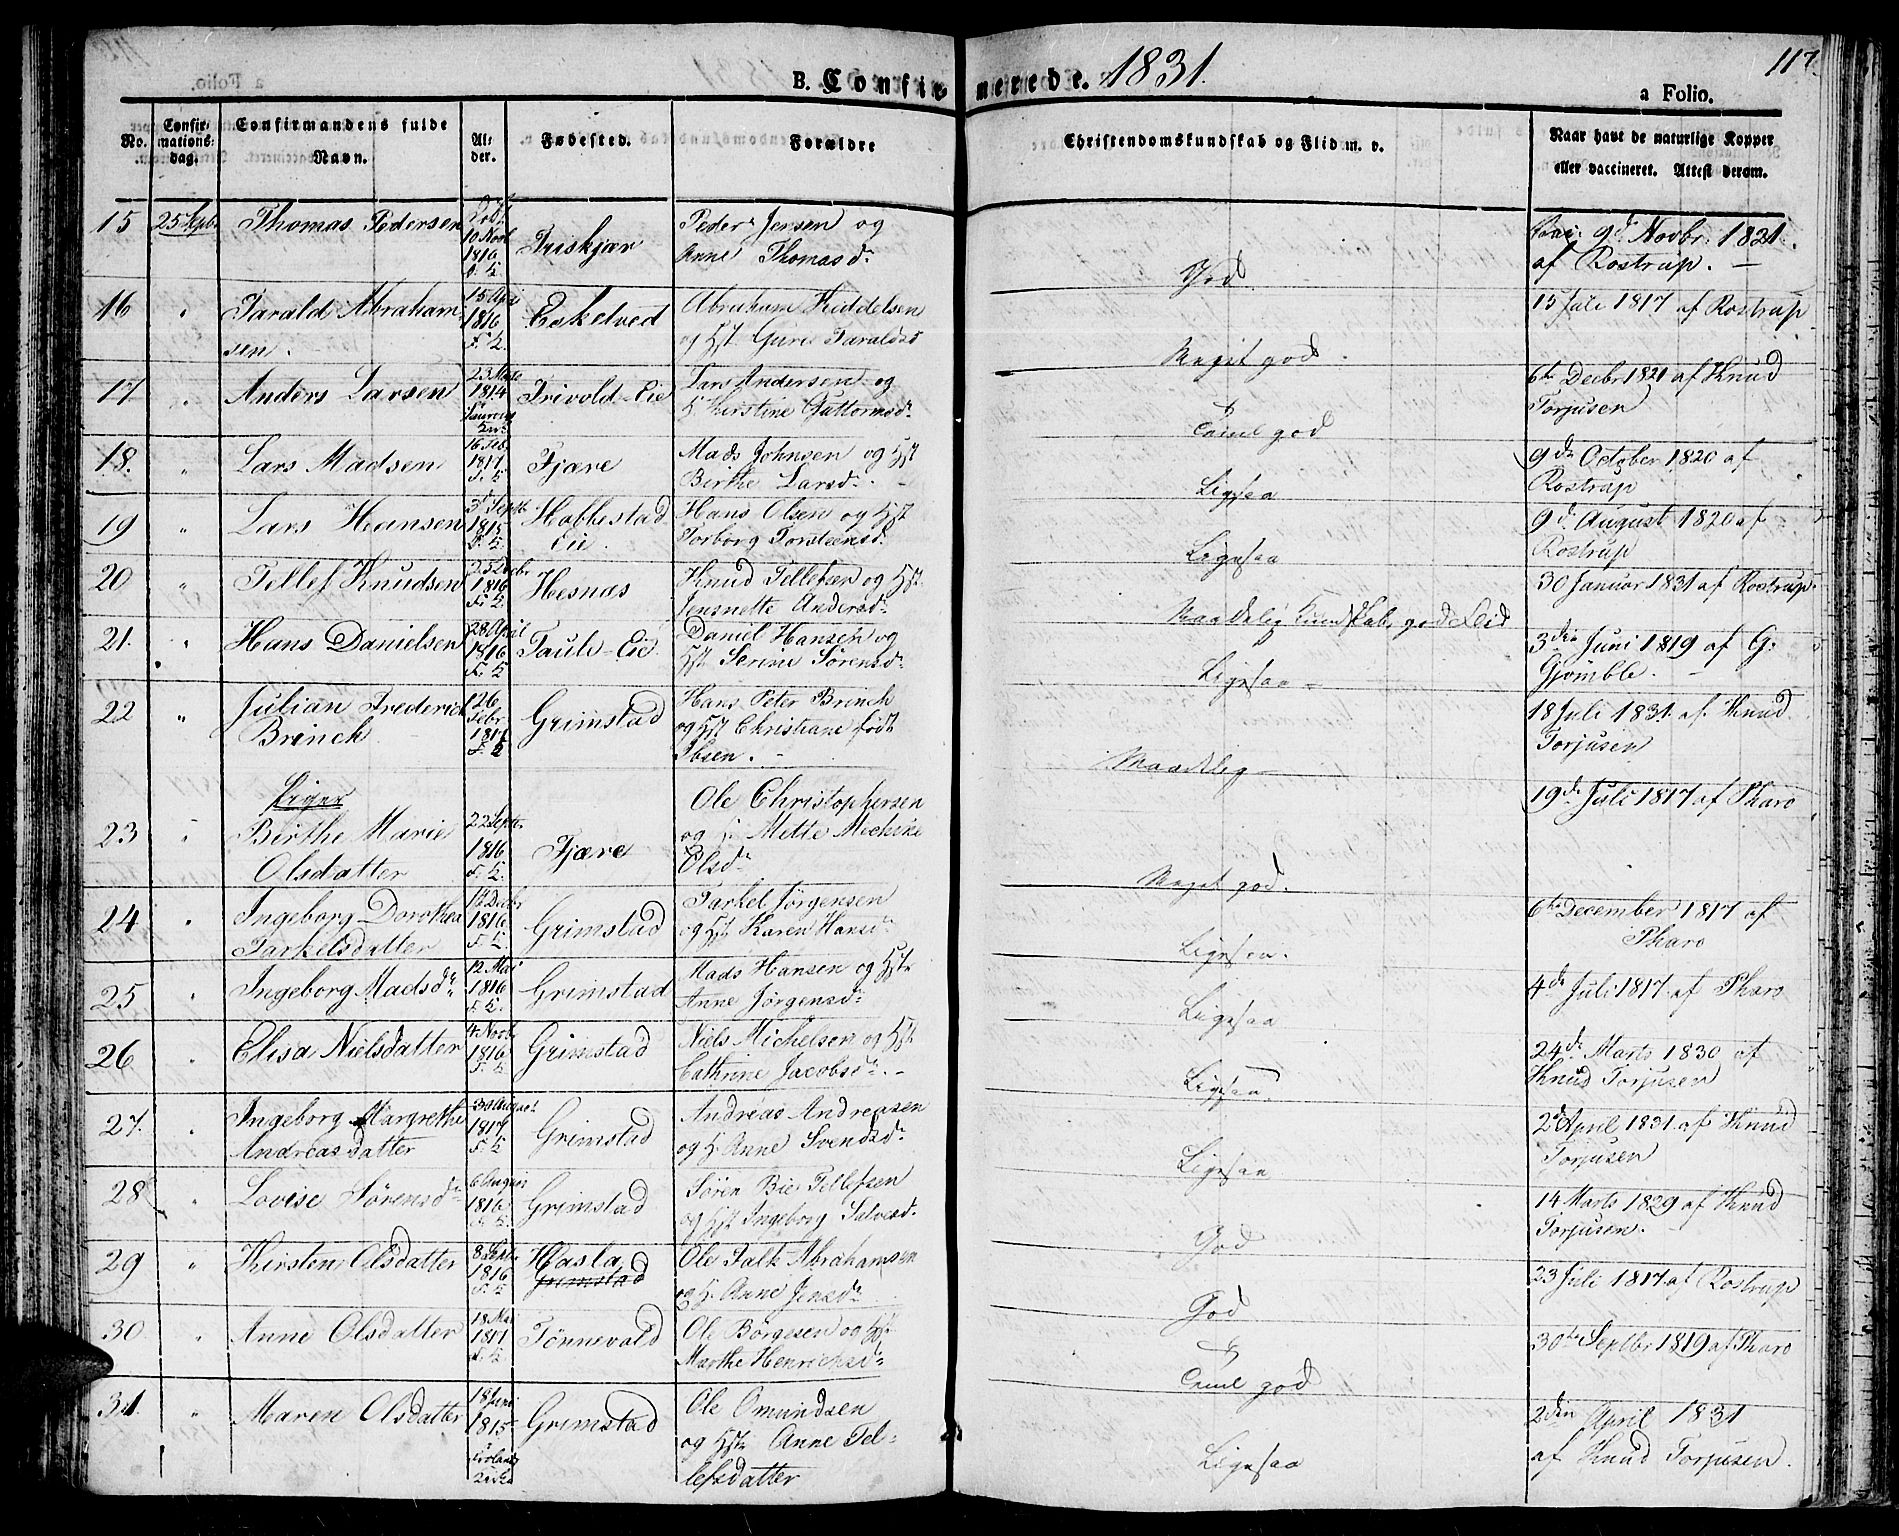 B. Confirmerede. 1831.
117.
a Folio.
No.
Confir-
mations-
dag.
Confirmandens fulde
Navn.
Al-
der.
Fødested.
Forældre
Christendomskundskab og Flid m. v.
Naar havt de naturlige Kopper
eller vaccineret. Attest derom.
15 25 Septbr Thomas Pedersen
10 Novb
1816
Peder Jensen og
Anne Thomasd.
God.
9d. Novbr. 1821.
af Rostrup. —
16 " Tarald Abraham
sen.
15 Apr
1816
F. K.
Eskelved
Abraham Kiddelsen
og Hst. Guro Taraldsd
Meget god.
15 Juli 1817 af Rostrup
17 " Anders Larsen
1814
Frivold-Eie
Lars Andersen og
H. Kirstine Guttormsd.
god
6te Decbr 1821 af Knud
Torjusen
18. " Lars Madsen
16 Feb
1817.
Fjære
Mads Johnsen og Hst
Birthe Larsd. -
Ligesaa
9de October 1820 af
Rostrup
19 " Lars Hansen
3d Septb
Eie.
Hans Olsen og Hst
Torborg Torsteinsd.
Ligesaa
9d. August 1820 af
Rostrup
20 " Tellef Knudsen
1816
Hesnæs
Knud Tellefsen og Hst.
Jensnette Andersd.
Maadelig Kundskab, god Flid
30 Januar 1831 af Rostrup.
21. " Hans Danielsen
28 April
1816
Daniel Hansen og
Hst Serine Sørensd.
Ligesaa -
3die Juni 1819 af G.
Gjømble. -
22 " Julian Frederich
Brinch
26
Febr
1817
Grimstad
Hans Peter Brinch
og Hst Christiane født
Ibsen. -
Maadelig
18 Juli 1831. af. Knud
Torjusen
Piger
23 " Birthe Marie
Olsdatter
22 Septr
1816.
Fjære
Ole Christophersen
og H. Mette
Olsd.
Meget god.
19de Juli 1817 af Pharo
24 " Ingeborg Dorothea
Tarkelsdatter
Decbr
1816.
Grimstad
Tarkel Jørgensen
og Hst. Karen Hansd.
Ligesaa.
6te December 1817 af
Pharo
25 " Ingeborg Madsd.
12 Mai
1816
Grimstad
Mads Hansen og Hst
Anne Jørgensd.
Ligesaa
4de Juli 1817. af Pharo
26 " Elisa Nielsdatter
4. Novb
1816
Grimstad
Niels Michelsen og Hst
Cathrine Jacobsd. -
Ligesaa.
24de Marts 1830 af
Knud Torjusen
27. " Ingeborg Margrethe
Andreasdatter
30 August
1817
Grimstad
Andreas Andreasen
og H. Anne Svendsd.
Ligesaa
2d April 1831. af Knud
Torjusen
28 " Lovise Sørensd.
6 August
1816
Grimstad
Søren Bie Tellefsen
og Hst Ingeborg Salvesd.
God
14 Marts 1829 af Knud
Torjusen.
29 " Kirsten Olsdatter
8 Septb
1816
Hasla
Grimstad
Ole Falk Abrahamsen
og H. Anne Jensd.
God
23 Juli 1817. af Rostrup
30 " Anne Olsdatter
18 Mai
1817
Tønnevold
Ole Børgesen og Hst
Marthe Henrichsd.
god
30te Septbr 1819 af Pharo
31. " Maren Olsdatter
18 Juni
1815
Grimstad
Ole Omundsen
og Hst Anne Tel-
lefsdatter
Ligesaa
2den April 1831
af Knud Torjusen.